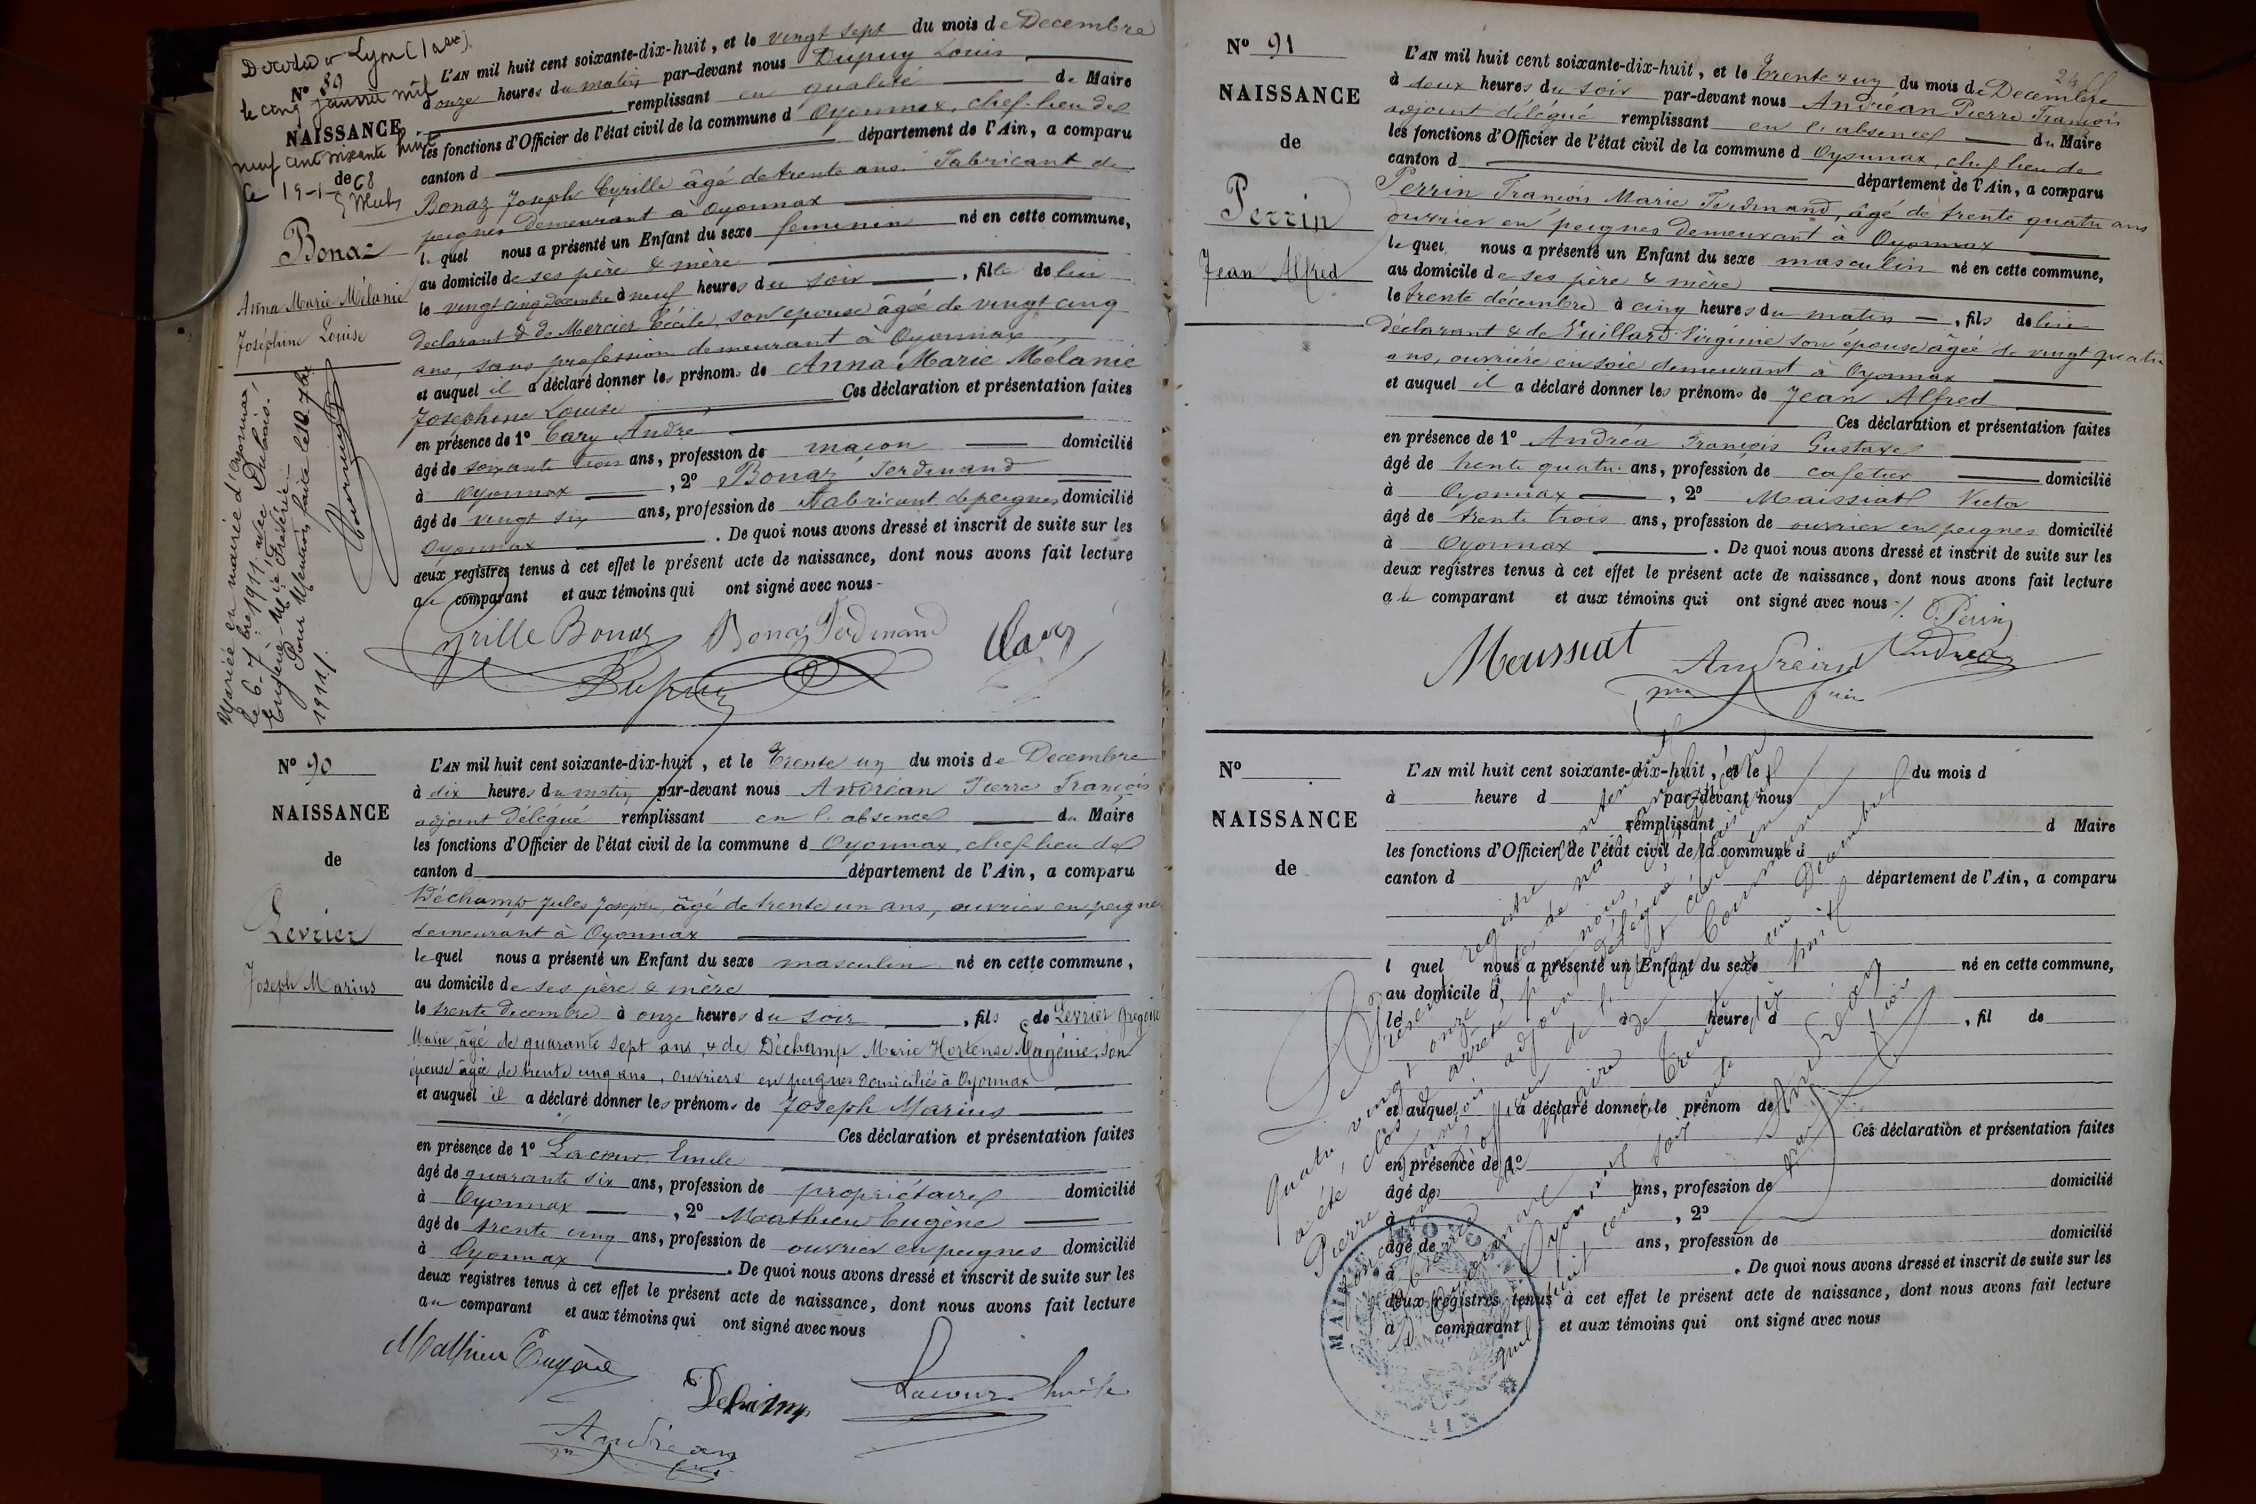 Décédée à Lyon (
le cinq janvier mil
neuf cent soixante huit
le 19-1-68
Nº 89
NAISSANCE
de
Bonaz
Anna Marie Mélanie
Joséphine Louise
Mariée en mairie d'Oyonnax,
le 6 7bre 1911, avec Dubois
Eugène
Pour Mention, faite le 7bre
1911.
L'AN mil huit cent soixante-dix-huit, et le vingt sept du mois de Decembre
à onze heures du matin par-devant nous Dupuy Louis
remplissant en qualité de Maire
les fonctions d'Officier de l'état civil de la commune d Oyonnax, chef-lieu de
canton d département de l'Ain, a comparu
Bonaz Joseph Cyrille âgé de trente ans Fabricant de
peignes demeurant à Oyonnax
lequel nous a présenté un Enfant du sexe feminin né en cette commune,
au domicile de ses père & mère
le vingt cinq decembre à neuf heures du soir, fille de lui
declarant & de Mercier Cécile, son epouse âgée de vingt cinq
ans, sans profession demeurant à Oyonnax
et auquel il a déclaré donner les prénoms de Anna Marie Mélanie
Josephine Louise Ces déclaration et présentation faites
en présence de 1º Cary André
âgé de soixante trois ans, profession de maçon domicilié
à Oyonnax, 2º Bonaz Ferdinand
âgé de vingt six ans, profession de Fabricant de peignes domicilié
Oyonnax. De quoi nous avons dressé et inscrit de suite sur les
deux registres tenus à cet effet le présent acte de naissance, dont nous avons fait lecture
au comparant et aux témoins qui ont signé avec nous
Cyrille Bonaz Bonaz Ferdinand Cary
Dupuy
Nº 90
NAISSANCE
de
Levrier
Joseph Marius
L'AN mil huit cent soixante-dix-huit, et le Trente un du mois de Decembre
à dix heures du matin par-devant nous Andréan Pierre François
adjoint délégué remplissant en l'absence du Maire
les fonctions d'Officier de l'état civil de la commune d Oyonnax, chef-lieu de
canton d département de l'Ain, a comparu
Déchamp Jules Joseph, âgé de trente un ans, ouvrier en peignes
demeurant à Oyonnax
lequel nous a présenté un Enfant du sexe masculin né en cette commune,
au domicile de ses père & mère
le trente decembre à onze heures du soir, fils de Levrier
Marie, âgé de quarante sept ans, & de Déchamp Marie Hortense son
épouse âgée de trente cinq ans, ouvriers en peignes domiciliés à Oyonnax
et auquel il a déclaré donner les prénoms de Joseph Marius
Ces déclaration et présentation faites
en présence de 1º Lacour Emile
âgé de quarante six ans, profession de propriétaire domicilié
à Oyonnax, 2º Mathieu Eugène
âgé de trente cinq ans, profession de ouvrier en peignes domicilié
à Oyonnax. De quoi nous avons dressé et inscrit de suite sur les
deux registres tenus à cet effet le présent acte de naissance, dont nous avons fait lecture
au comparant et aux témoins qui ont signé avec nous
Mathieu Eugène
Dechamp Lacour Emile
Andréan
Nº 91
NAISSANCE
de
Perrin
Jean Alfred
L'AN mil huit cent soixante-dix-huit, et le Trente & un du mois de Decembre
à deux heures du soir par-devant nous Andréan Pierre François
adjoint délégué remplissant en l'absence du Maire
les fonctions d'Officier de l'état civil de la commune d Oyonnax, chef-lieu de
canton d département de l'Ain, a comparu
Perrin François Marie Ferdinand, âgé de trente quatre ans
ouvrier en peignes demeurant à Oyonnax
lequel nous a présenté un Enfant du sexe masculin né en cette commune,
au domicile de ses père & mère
le trente décembre à cinq heures du matin, fils de lui
déclarant & de Vuillard Virginie son épouse âgée de vingt quatre
ans, ouvrière en soie demeurant à Oyonnax
et auquel il a déclaré donner les prénoms de Jean Alfred
Ces déclaration et présentation faites
en présence de 1º Andréa François Gustave
âgé de trente quatre ans, profession de cafetier domicilié
à Oyonnax, 2º Maissiat Victor
âgé de trente trois ans, profession de ouvrier en peignes domicilié
à Oyonnax. De quoi nous avons dressé et inscrit de suite sur les
deux registres tenus à cet effet le présent acte de naissance, dont nous avons fait lecture
au comparant et aux témoins qui ont signé avec nous
Perrin
Meussiat Andréan Andréa
Nº
NAISSANCE
de
L'AN mil huit cent soixante-dix-huit, et le du mois d
à heure d par-devant nous
remplissant d Maire
les fonctions d'Officier de l'état civil de la commune d
canton d département de l'Ain, a comparu
l quel nous a présenté un Enfant du sexe né en cette commune,
au domicile d
le à heure d, fil de
et auquel a déclaré donner le prénom de
Ces déclaration et présentation faites
en présence de 1º
âgé de ans, profession de domicilié
à, 2º
âgé de ans, profession de domicilié
à. De quoi nous avons dressé et inscrit de suite sur les
deux registres tenus à cet effet le présent acte de naissance, dont nous avons fait lecture
a comparant et aux témoins qui ont signé avec nous
Le présent registre contenant
quatre vingt onze actes de naissance
a été clos & arrêté par nous
Pierre François adjoint délégué
MAIRIE
AIN